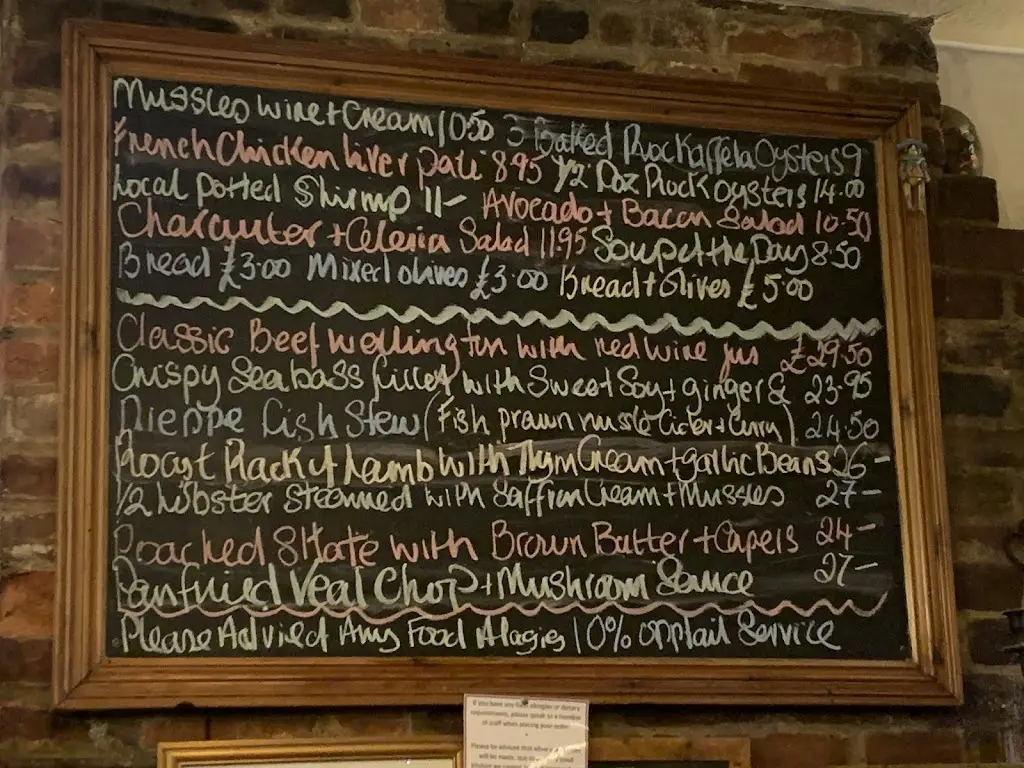 Mussles wine + Cream 10.50 3 Baked Rockaffela Oysters 9
French Chicken liver pate 8.95 1/2 Doz Rock oysters 14.00
Local Potted Shrimp 11- Avocado + Bacon Salad 10.50
Charcuter + Celeria Salad 11.95 Soup of the Day 8.50
Bread £3.00 Mixed olives £3.00 Bread + Olives £5.00
Classic Beef wellington with red wine jus £29.50
Crispy Seabass fillet with Sweet Soy + ginger & 23.95
Dieppe Fish Stew (Fish prawn mussle Cider + Curry) 24.50
Roast Rack of Lamb with Thym Cream + garlic Beans 26-
1/2 Lobster steamed with Saffron Cream + Mussles 27-
Poached Skate with Brown Butter + Capers 24-
Panfried Veal Chop + Mushroom Sauce 27-
Please Advied of Any Food Alagies 10% optnail Service
If you have any food allergies or dietary
requirements, please speak to a member
of staff when placing your order.
Please be advised that where